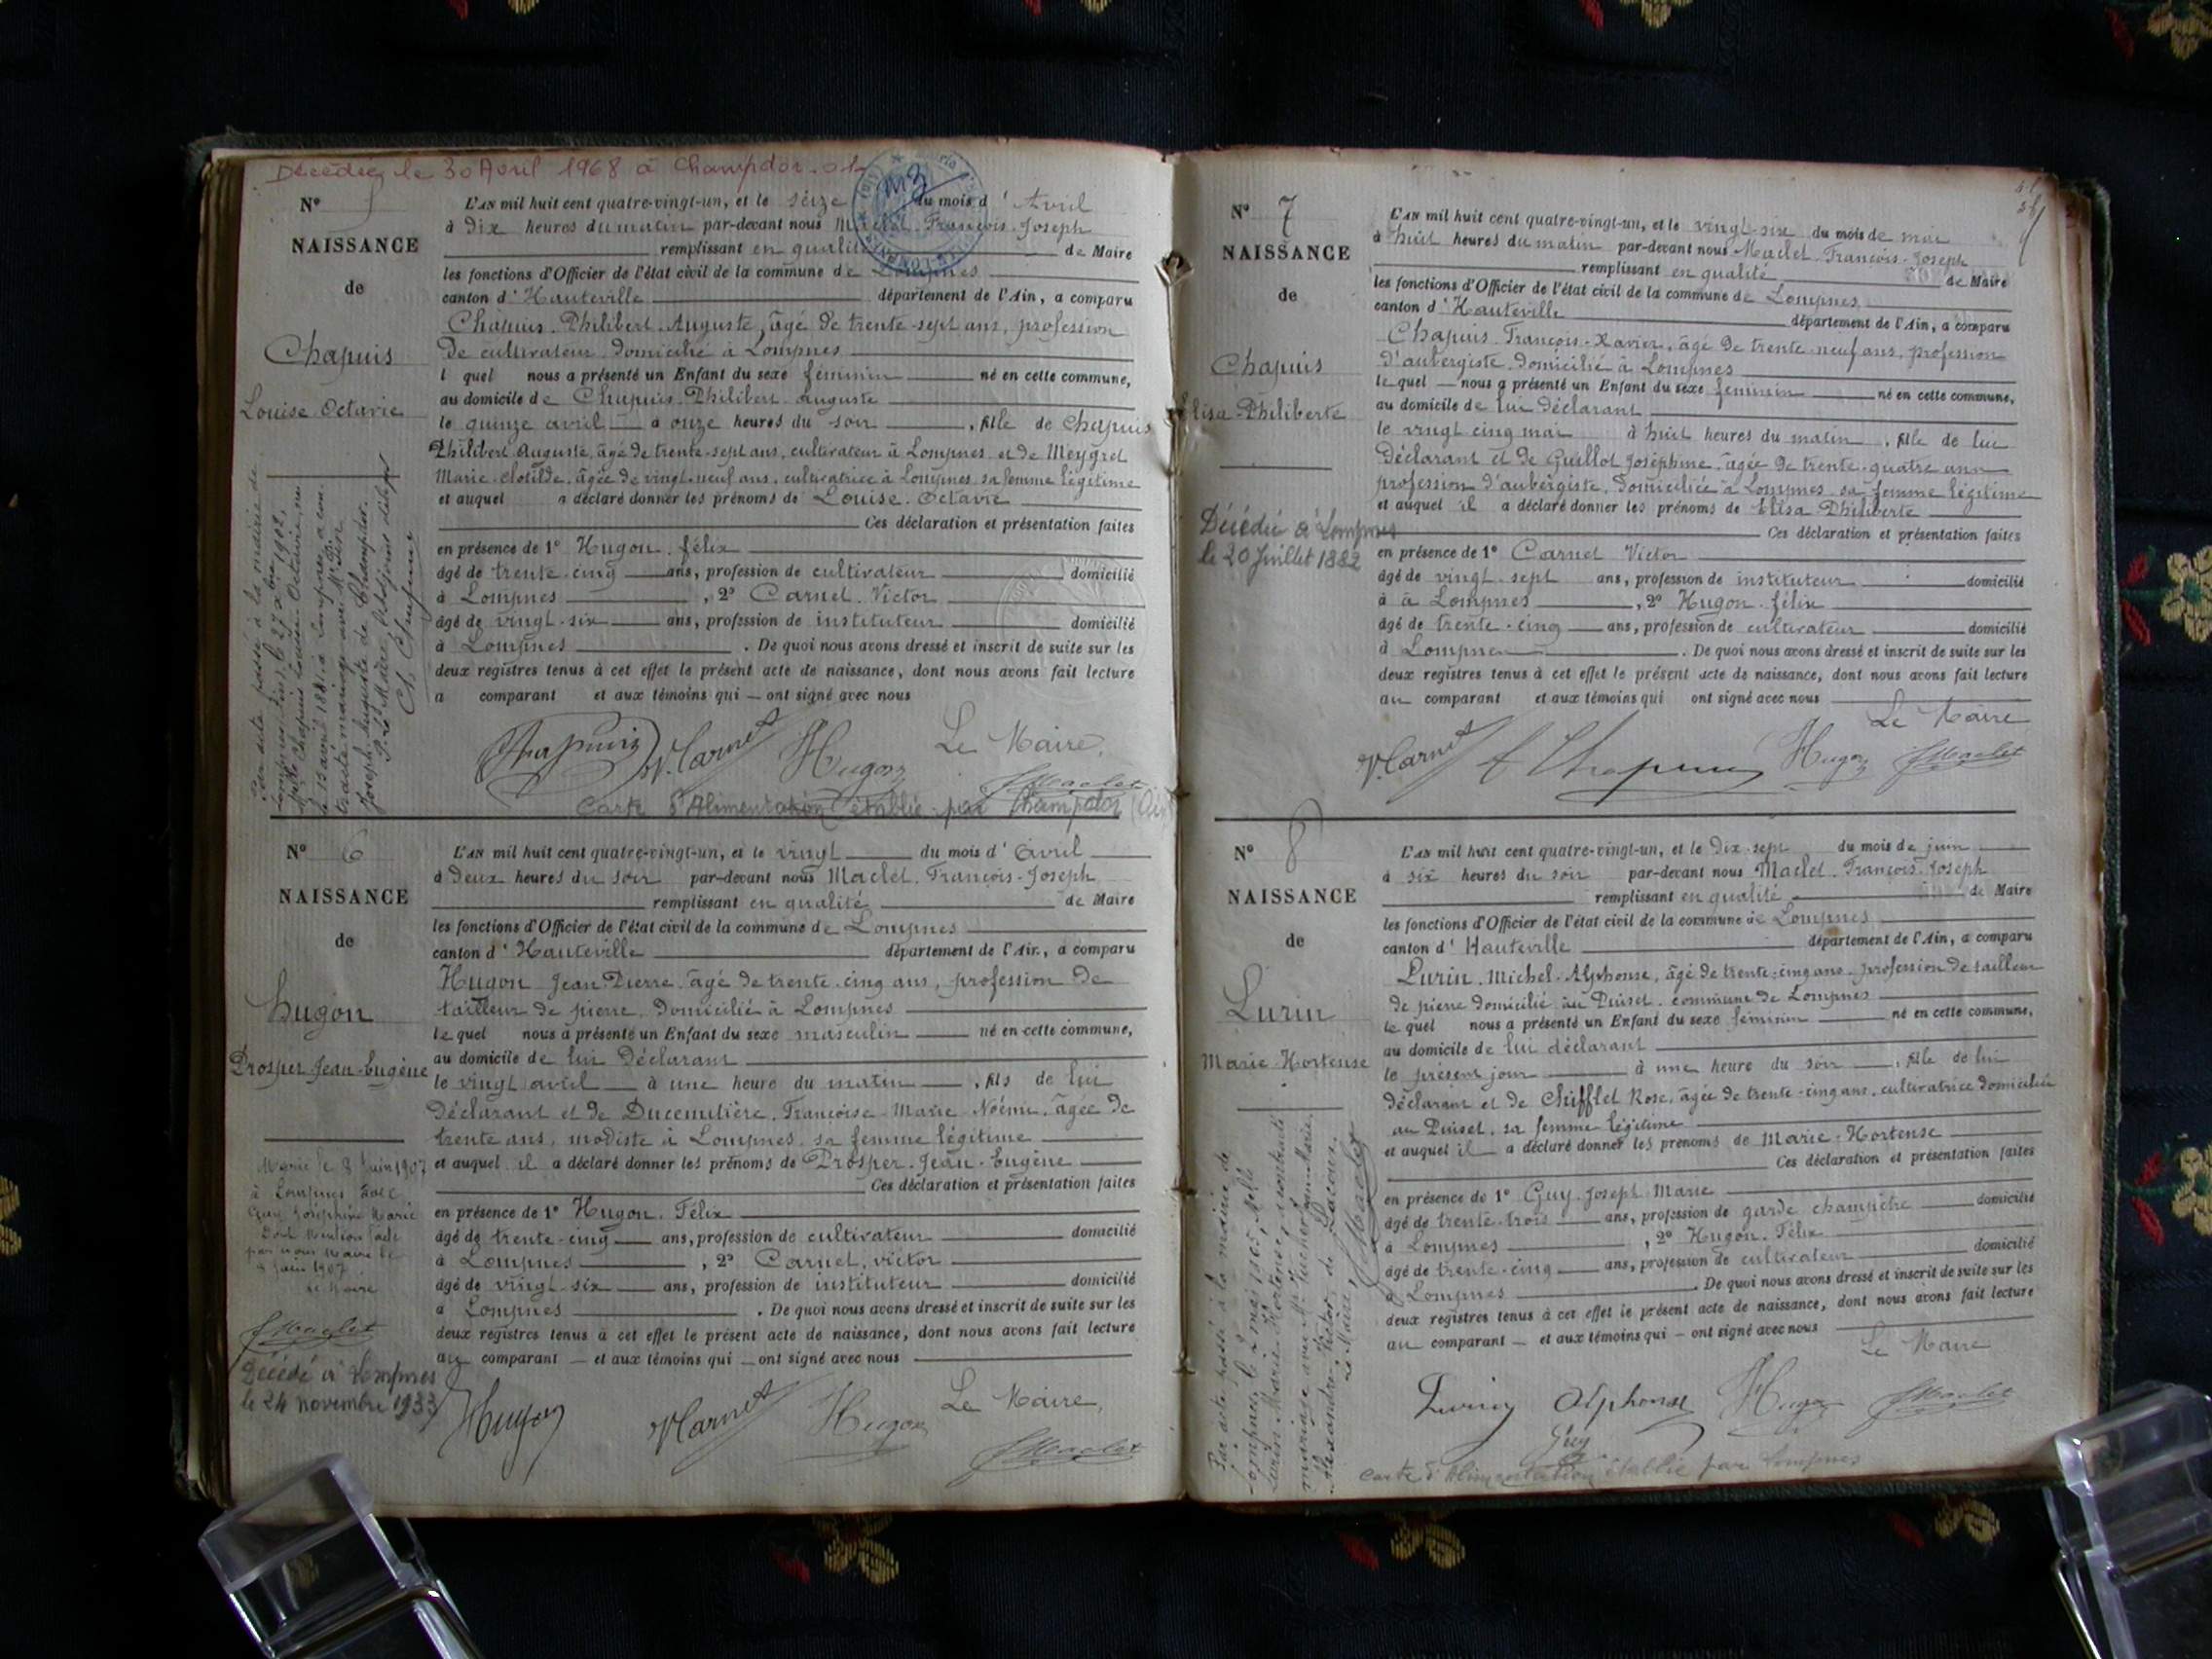 Décédée le 30 Avril 1968 à Champdor. 01
N° 5
NAISSANCE
de
Chapuis
Louise Octavie
L'AN mil huit cent quatre-vingt-un, et le seize du mois d' Avril
à dix heures du matin par-devant nous Maclet. François-Joseph
remplissant en qualité de Maire
les fonctions d'Officier de l'état civil de la commune de Lompnes
canton d' Hauteville département de l'Ain, a comparu
Chapuis. Philibert. Auguste, âgé de trente-sept ans, profession
de cultivateur domicilié à Lompnes
l quel nous a présenté un Enfant du sexe féminin né en cette commune,
au domicile de Chapuis. Philibert auguste
le quinze avril à onze heures du soir , fille de Chapuis
Philibert Auguste, âgé de trente-sept ans, cultivateur à Lompnes et de Meygret
Marie Clotilde, âgée de vingt-neuf ans, cultivatrice à Lompnes sa femme légitime
et auquel a déclaré donner les prénoms de Louise. Octavie
Ces déclaration et présentation faites
en présence de 1° Hugon. félix
âgé de trente-cinq ans, profession de cultivateur domicilié
à Lompnes , 2° Carnet. Victor
âgé de vingt-six ans, profession de instituteur domicilié
à Lompnes . De quoi nous avons dressé et inscrit de suite sur les
deux registres tenus à cet effet le présent acte de naissance, dont nous avons fait lecture
a comparant et aux témoins qui — ont signé avec nous
Le Maire,
Chapuis V. Carnet Hugon Maclet
Carte d'Alimentation établie par Champdor (Ain)
N° 6
NAISSANCE
de
Hugon
Prosper Jean-Eugène
Marié le 8 Juin 1907
à Lompnes avec
Guy Joséphine Marie
Dont mention faite
par nous Maire le
Juin 1907
Le Maire
Maclet
Décédé à Lompnes
le 24 novembre 1933
L'AN mil huit cent quatre-vingt-un, et le vingt du mois d' Avril
à deux heures du soir par-devant nous Maclet. François-Joseph
remplissant en qualité de Maire
les fonctions d'Officier de l'état civil de la commune de Lompnes
canton d' Hauteville département de l'Ain, a comparu
Hugon Jean Pierre. âgé de trente-cinq ans, profession de
tailleur de pierre, domicilié à Lompnes
le quel nous a présenté un Enfant du sexe masculin né en cette commune,
au domicile de lui Déclarant
le vingt avril à une heure du matin , fils de lui
Déclarant et de Françoise-Marie Noémie. âgée de
trente ans, modiste à Lompnes. sa femme légitime
et auquel il a déclaré donner les prénoms de Prosper-Jean-Eugène
Ces déclaration et présentation faites
en présence de 1° Hugon. Félix
âgé de trente-cinq ans, profession de cultivateur domicilié
à Lompnes , 2° Carnet, victor
âgé de vingt-six ans, profession de instituteur domicilié
à Lompnes . De quoi nous avons dressé et inscrit de suite sur les
deux registres tenus à cet effet le présent acte de naissance, dont nous avons fait lecture
au comparant — et aux témoins qui — ont signé avec nous
Le Maire,
Hugon V. Carnet Hugon Maclet
N° 7
NAISSANCE
de
Chapuis
Elisa-Philiberte
Décédée à Lompnes
le 20 Juillet 1882
L'AN mil huit cent quatre-vingt-un, et le vingt-six du mois de mai
à huit heures du matin par-devant nous Maclet. François-Joseph
remplissant en qualité de Maire
les fonctions d'Officier de l'état civil de la commune de Lompnes
canton d' Hauteville département de l'Ain, a comparu
Chapuis François-Xavier, âgé de trente-neuf ans, profession
d'aubergiste. domicilié à Lompnes
le quel — nous a présenté un Enfant du sexe féminin né en cette commune,
au domicile de lui déclarant
le vingt cinq mai à huit heures du matin , fille de lui
déclarant et de Guillot Joséphine, âgée de trente-quatre ans
profession d'aubergiste, domiciliée à Lompnes sa femme légitime
et auquel il a déclaré donner les prénoms de Elisa Philiberte
Ces déclaration et présentation faites
en présence de 1° Carnet Victor
âgé de vingt-sept ans, profession de instituteur domicilié
à à Lompnes , 2° Hugon. félix
âgé de trente-cinq ans, profession de cultivateur domicilié
à Lompnes . De quoi nous avons dressé et inscrit de suite sur les
deux registres tenus à cet effet le présent acte de naissance, dont nous avons fait lecture
au comparant et aux témoins qui ont signé avec nous
Le Maire
V. Carnet Chapuis Hugon Maclet
N° 8
NAISSANCE
de
Lurin
Marie-Hortense
L'AN mil huit cent quatre-vingt-un, et le dix-sept du mois de juin
à six heures du soir par-devant nous Maclet. François-Joseph
remplissant en qualité de Maire
les fonctions d'Officier de l'état civil de la commune de Lompnes
canton d' Hauteville département de l'Ain, a comparu
Lurin. Michel-Alphonse, âgé de trente-cinq ans. profession de tailleur
de pierre domicilié au Puiset. commune de Lompnes
le quel nous a présenté un Enfant du sexe féminin né en cette commune,
au domicile de lui déclarant
le présent jour à une heure du soir , fille de lui
déclarant et de Chifflet Rose, âgée de trente-cinq ans, cultivatrice domiciliée
au Puiset. sa femme légitime
et auquel il a déclaré donner les prénoms de Marie-Hortense
Ces déclaration et présentation faites
en présence de 1° Guy-Joseph-Marie
âgé de trente-trois ans, profession de garde champêtre domicilié
à Lompnes , 2° Hugon. Félix
âgé de trente-cinq ans, profession de cultivateur domicilié
à Lompnes . De quoi nous avons dressé et inscrit de suite sur les
deux registres tenus à cet effet le présent acte de naissance, dont nous avons fait lecture
au comparant — et aux témoins qui — ont signé avec nous
Le Maire
Lurin Alphonse Hugon Maclet
Guy
Carte d'Alimentation établie par Lompnes